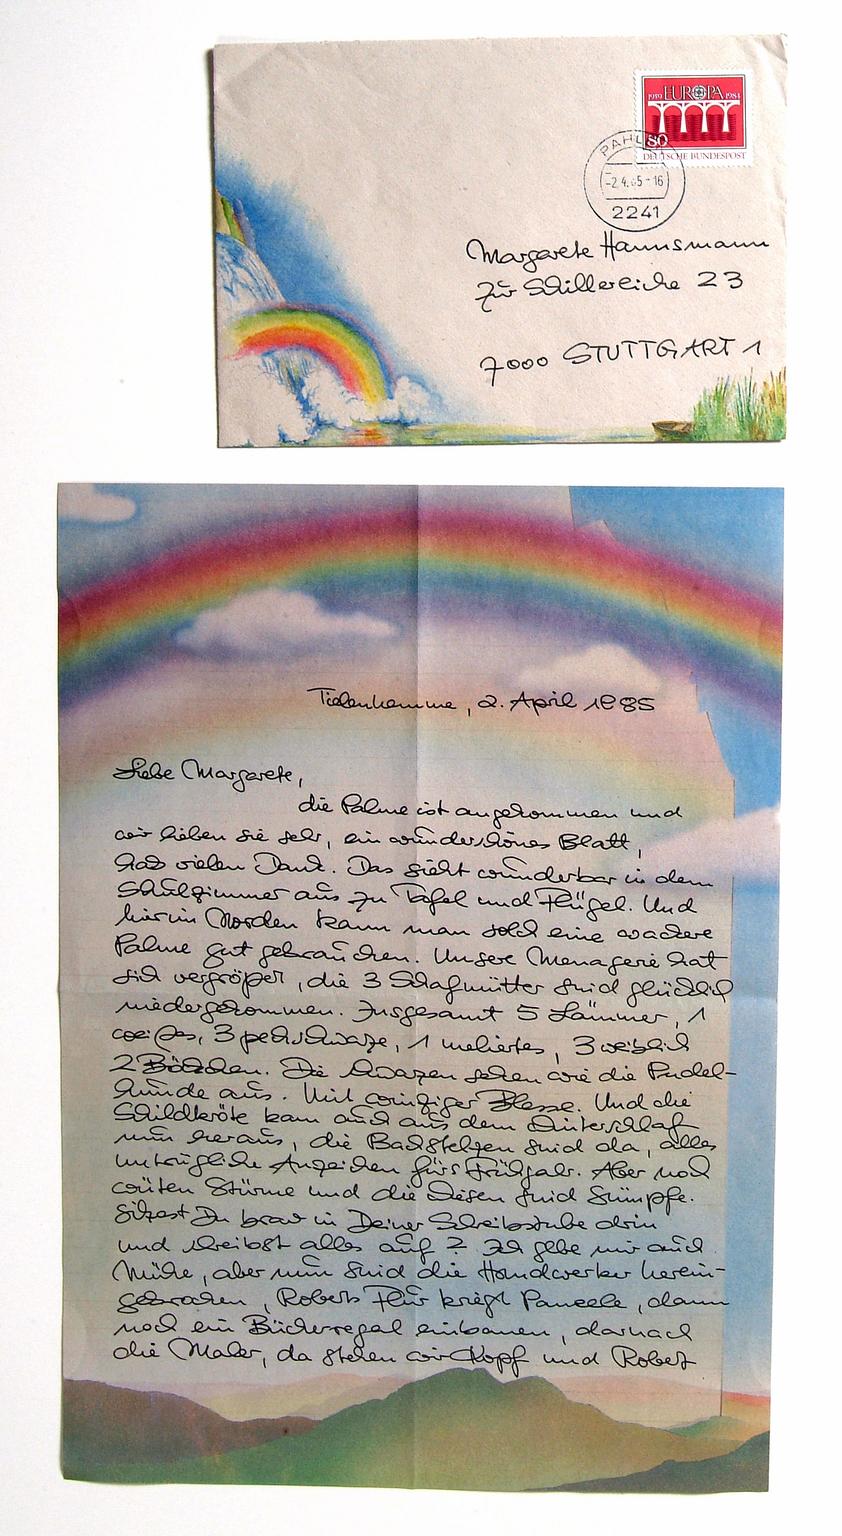 1959 EUROPA 1984
80
DEUTSCHE BUNDESPOST
PAHLEN
-2.4.85-16
2241
Margarete Hannsmann
Zur Schillereiche 23
7000 STUTTGART 1
Tielenhemme, 2. April 1985
Liebe Margarete,
die Palme ist angekommen und
wir lieben sie sehr, ein wunderschönes Blatt,
hab vielen Dank. Das sieht wunderbar in dem
Schulzimmer aus zu Tafel und Flügel. Und
hier im Norden kann man solch eine wackere
Palme gut gebrauchen. Unsere Menagerie hat
sich vergrößert, die 3 Schafmütter sind glücklich
niedergekommen. Insgesamt 5 Lämmer, 1
weißes, 3 pechschwarze, 1 meliertes, 3 weiblich
2 Böckchen. Die schwarzen sehen wie die Pudel-
hunde aus. Mit winziger Blesse. Und die
Schildkröte kam auch aus dem Winterschlaf
nun heraus, die Bachstelzen sind da, alles
untrügliche Anzeichen fürs Frühjahr. Aber noch
wüten Stürme und die Wiesen sind Sümpfe.
Sitzest Du brav in Deiner Schreibstube drin
und schreibst alles auf? Ich gebe mir auch
Mühe, aber nun sind die Handwerker herein-
gebrochen, Roberts Flur kriegt Paneele, dann
noch ein Bücherregal einbauen, darnach
die Maler, da stehen wir Kopf und Robert